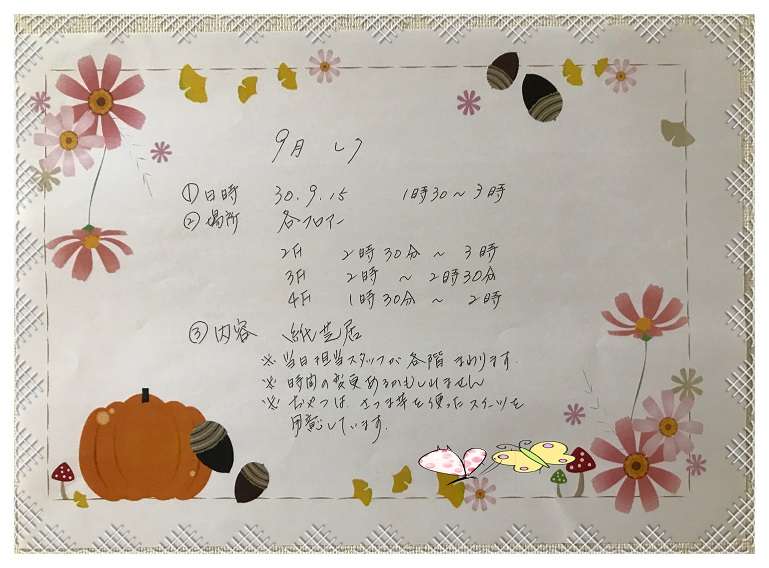 9月 レク
①日時 30.9.15 1時30～3時
②場所 各フロアー
2F 2時30分～3時
3F 2時～2時30分
4F 1時30分～2時
③内容 紙芝居
※当日担当スタッフが各階まわります。
※時間の変更あるかもしれません
※おやつは、さつま芋を使ったスイーツを
用意しています。